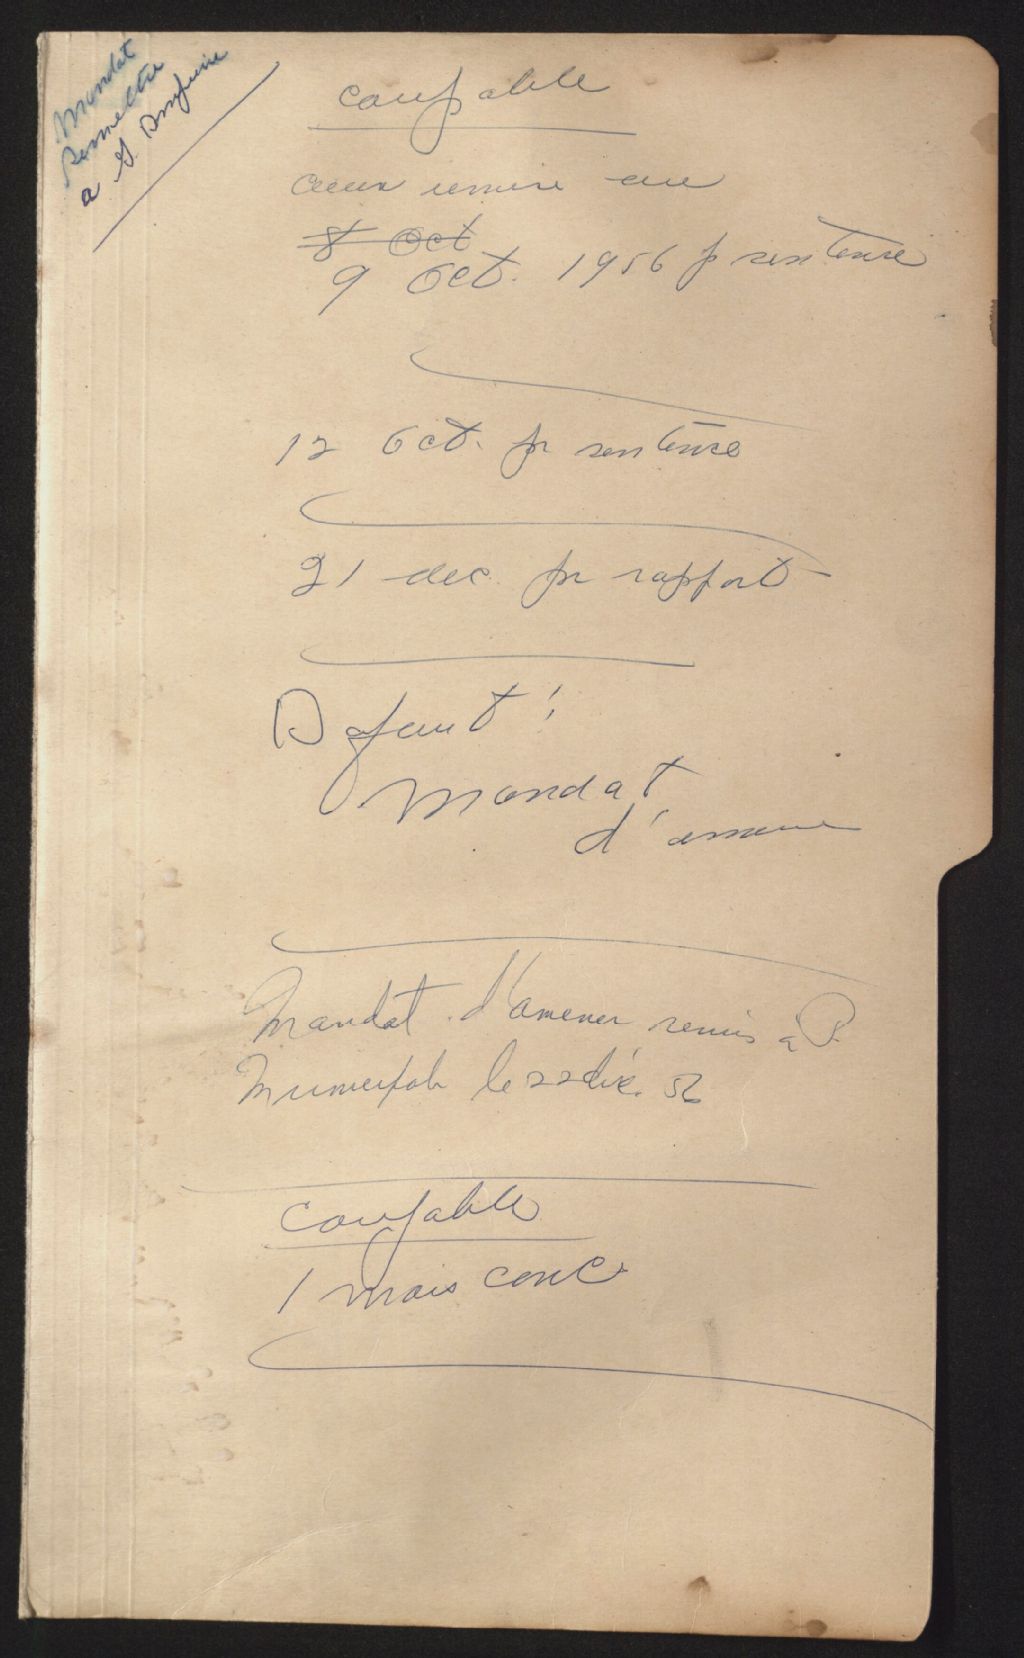 Mandat
Remettre
a G.
coupable
cause remise au
8 Oct
9 Oct. 1956 pr sentence
12 Oct. pr sentence
21 dec. pr rapport
Defaut!
Mandat
d'amener
Mandat d'amener remis à P.
le 22 déc. 56
coupable
1 mois conc